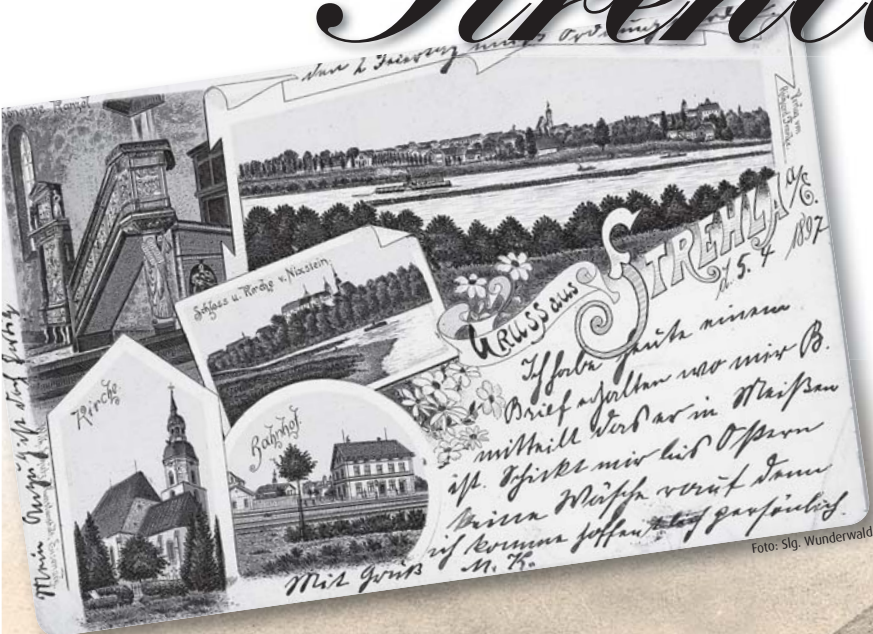 Strehla
den 2 Feiertag muß Ordnung
Kanzel
Schloss u. Kirche v. Nixstein.
Kirche.
Bahnhof.
Gruss aus STREHLA a/E.
d. 5. 4 1897
Ich habe heute einem
Brief erhalten wo mir B.
mitteilt das er in Meißen
ist. Schickt mir bis Ostern
keine Wäsche rauf denn
ich komme hoffentlich persönlich.
Mit Gruß M. K.
Mein
Foto: Slg. Wunderwald